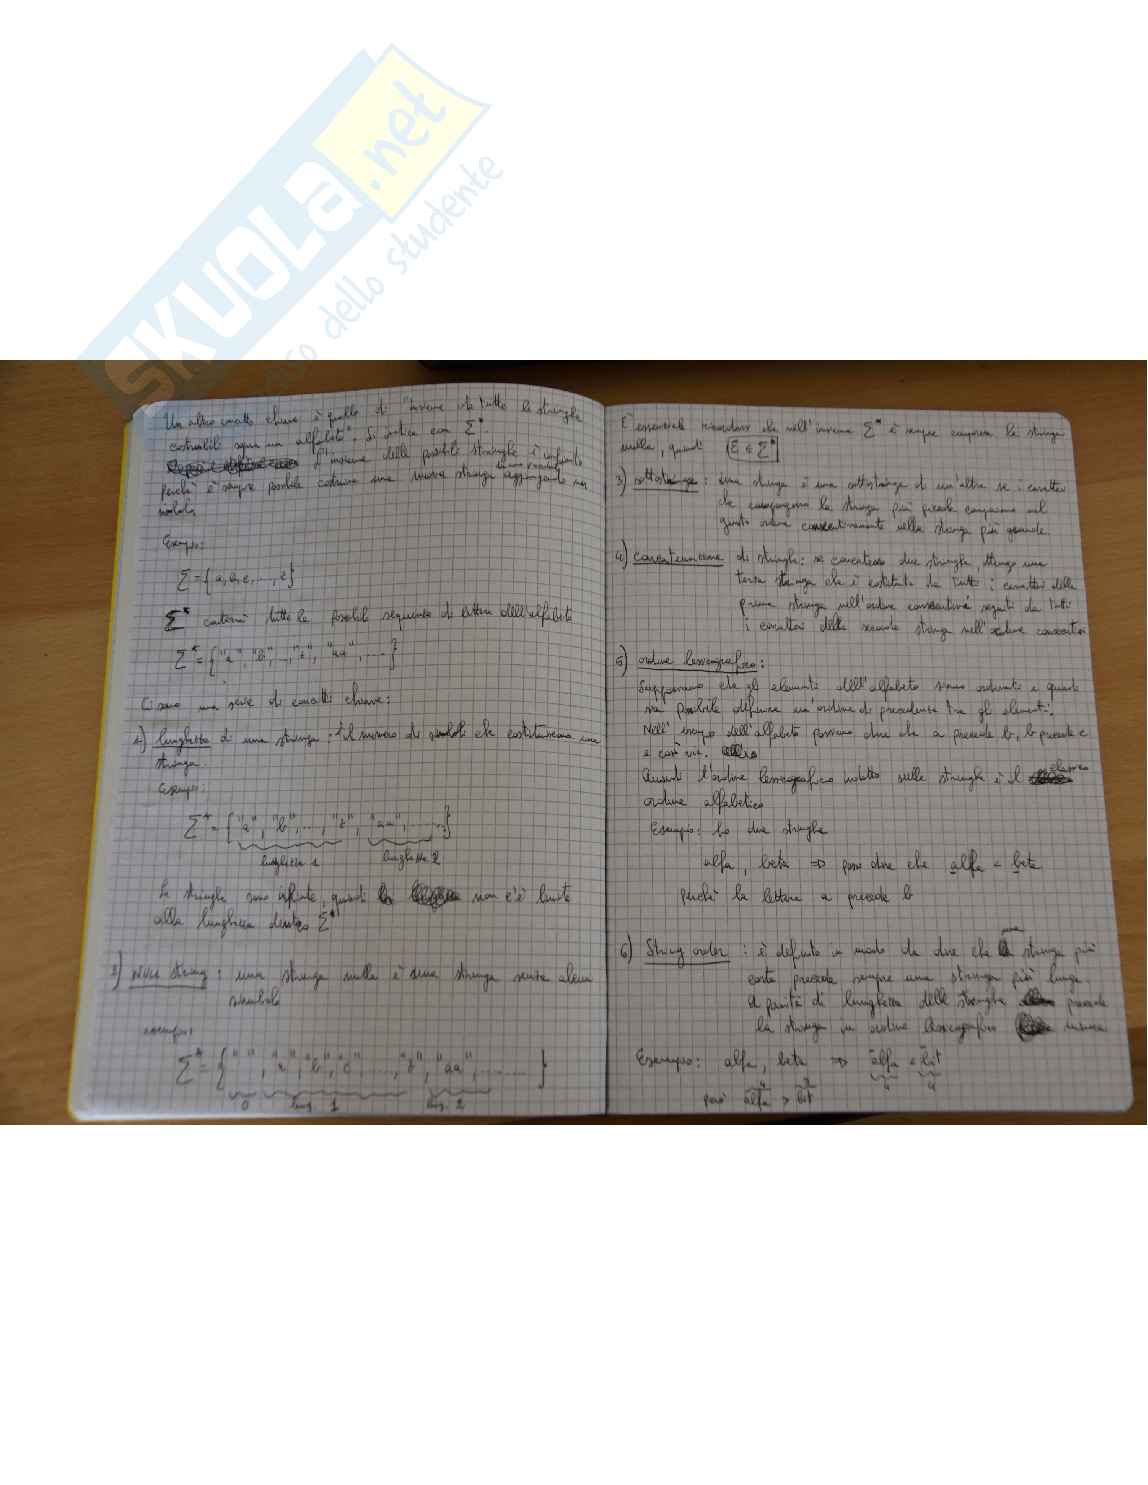 SKUOLA.net
dello studente
Un altro concetto chiave è quello di "insieme di tutte le stringhe
costruibili sopra un alfabeto". Si indica con Σ*.
L'insieme delle possibili stringhe è infinito
perché è sempre possibile costruire una nuova stringa aggiungendo un
simbolo
Esempio:
Σ = {a, b, c, ..., z}
Σ* conterrà tutte le possibili sequenze di lettere dell'alfabeto
Σ* = {"a", "b", ..., "z", "aa", ....}
Ci sono una serie di concetti chiave:
1) lunghezza di una stringa: il numero di simboli che costituiscono una
stringa.
Esempio:
Σ* = {"a", "b", ...., "z", "aa", ......}
lunghezza 1 lunghezza 2
Le stringhe sono infinite, quindi non c'è limite
alla lunghezza dentro Σ*
2) Null string: una stringa nulla è una stringa senza alcun
simbolo
esempio:
Σ* = {" ", "a", "b", "c" ...., "z", "aa", ........}
0 lung. 1 lung. 2
È essenziale ricordarsi che nell'insieme Σ* è sempre compresa la stringa
nulla, quindi ε ∈ Σ*
3) sottostringa: una stringa è una sottostringa di un'altra se i caratteri
che compongono la stringa più piccola compaiono nel
giusto ordine consecutivamente nella stringa più grande.
4) concatenazione di stringhe: se concateno due stringhe, ottengo una
terza stringa che è costituita da tutti i caratteri della
prima stringa nell'ordine consecutivi seguiti da tutti
i caratteri della seconda stringa nell'ordine consecutivi
5) ordine lessicografico:
Supponiamo che gli elementi dell'alfabeto siano ordinati e quindi
sia possibile definire un ordine di precedenza tra gli elementi.
Nell'esempio dell'alfabeto possiamo dire che a precede b, b precede c
e così via.
Quindi l'ordine lessicografico indotto sulle stringhe è il classico
ordine alfabetico
Esempio: ho due stringhe
alfa, beta => posso dire che alfa < beta
perché la lettera a precede b
6) String order: è definito in modo da dire che una stringa più
corta precede sempre una stringa più lunga.
A parità di lunghezza delle stringhe precede
la stringa in ordine lessicografico minore
Esempio: alfa, beta =>
4 4
però alfa > bit